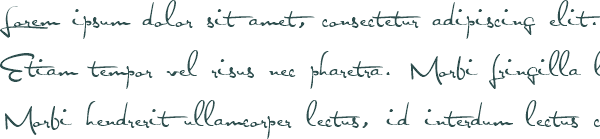 Lorem ipsum dolor sit amet, consectetur adipiscing elit.
Etiam tempor vel risus nec pharetra. Morbi fringilla l
Morbi hendrerit ullamcorper lectus, id interdum lectus c